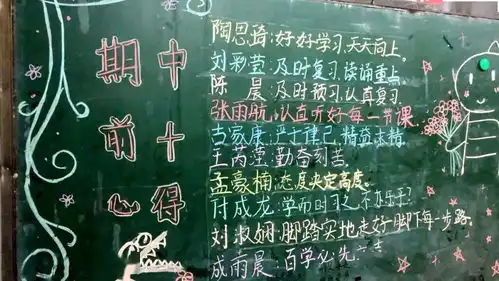 期中
前十
心得
陶思琦:好好学习,天天向上。
刘彩莹:及时复习,读诵重点
陈晨:及时预习认真复习
张雨航:认真听好每一节课
古家康:严于律己,精益求精
王芮滢:勤奋刻苦
孟豪楠:态度决定高度。
付成龙:学而时习之不亦乐乎?
刘淑娴:脚踏实地走好脚下每一步路
成雨晨:百学必先